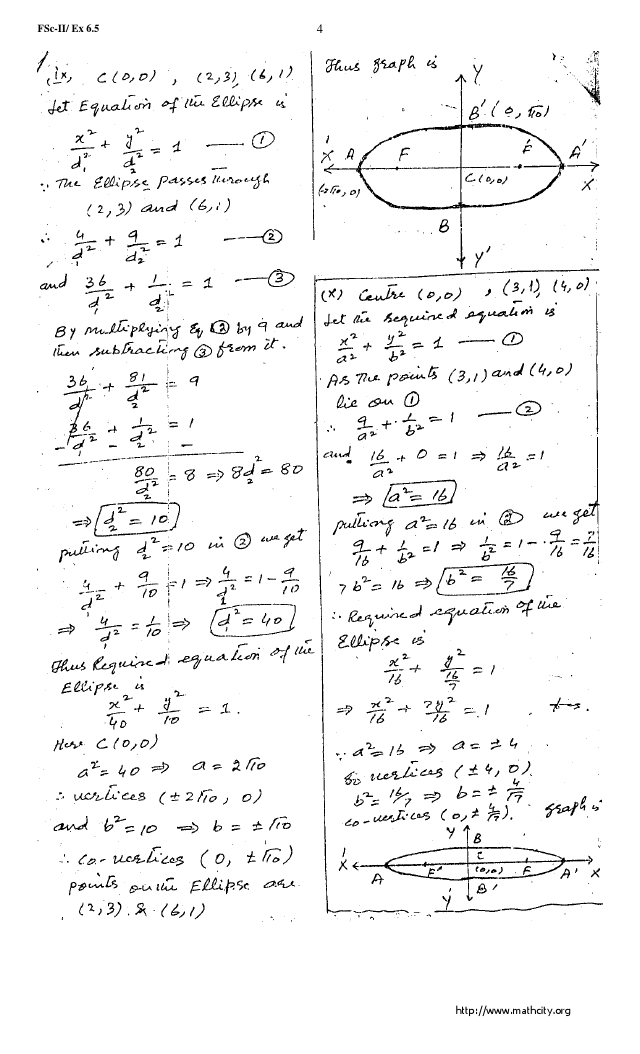 FSc-II/ Ex 6.5
4
(ix) C(0,0) , (2,3), (6,1)
Let Equation of the Ellipse is
x²/d₁² + y²/d₂² = 1 —— ①
∵ The Ellipse Passes Through
(2,3) and (6,1)
∴ 4/d₁² + 9/d₂² = 1 —— ②
and 36/d₁² + 1/d₂² = 1 —— ③
By multiplying Eq ② by 9 and
then subtracting ③ from it.
36/d₁² + 81/d₂² = 9
36/d₁² + 1/d₂² = 1
- - -
80/d₂² = 8 ⇒ 8d₂² = 80
⇒ d₂² = 10
putting d₂² = 10 in ② we get
4/d₁² + 9/10 = 1 ⇒ 4/d₁² = 1 - 9/10
⇒ 4/d₁² = 1/10 ⇒ d₁² = 40
Thus Required equation of the
Ellipse is
x²/40 + y²/10 = 1.
Here C(0,0)
a² = 40 ⇒ a = 2√10
∴ vertices (±2√10, 0)
and b² = 10 ⇒ b = ±√10
∴ co-vertices (0, ±√10)
points on the Ellipse are
(2,3) & (6,1)
Thus graph is
Y
B'(0, √10)
X' A F C(0,0) F' A' X
(2√10, 0)
B
Y'
(x) Centre (0,0) , (3,1), (4,0)
Let the required equation is
x²/a² + y²/b² = 1 —— ①
As The points (3,1) and (4,0)
lie on ①
∴ 9/a² + 1/b² = 1 —— ②
and 16/a² + 0 = 1 ⇒ 16/a² = 1
⇒ a² = 16
putting a² = 16 in ② we get
9/16 + 1/b² = 1 ⇒ 1/b² = 1 - 9/16 = 7/16
7b² = 16 ⇒ b² = 16/7
∴ Required equation of the
Ellipse is
x²/16 + y²/(16/7) = 1
⇒ x²/16 + 7y²/16 = 1
∵ a² = 16 ⇒ a = ±4
So vertices (±4, 0)
b² = 16/7 ⇒ b = ± 4/√7
co-vertices (0, ± 4/√7). Graph is
Y B
X' C X
A F' (0,0) F A'
Y' B'
http://www.mathcity.org